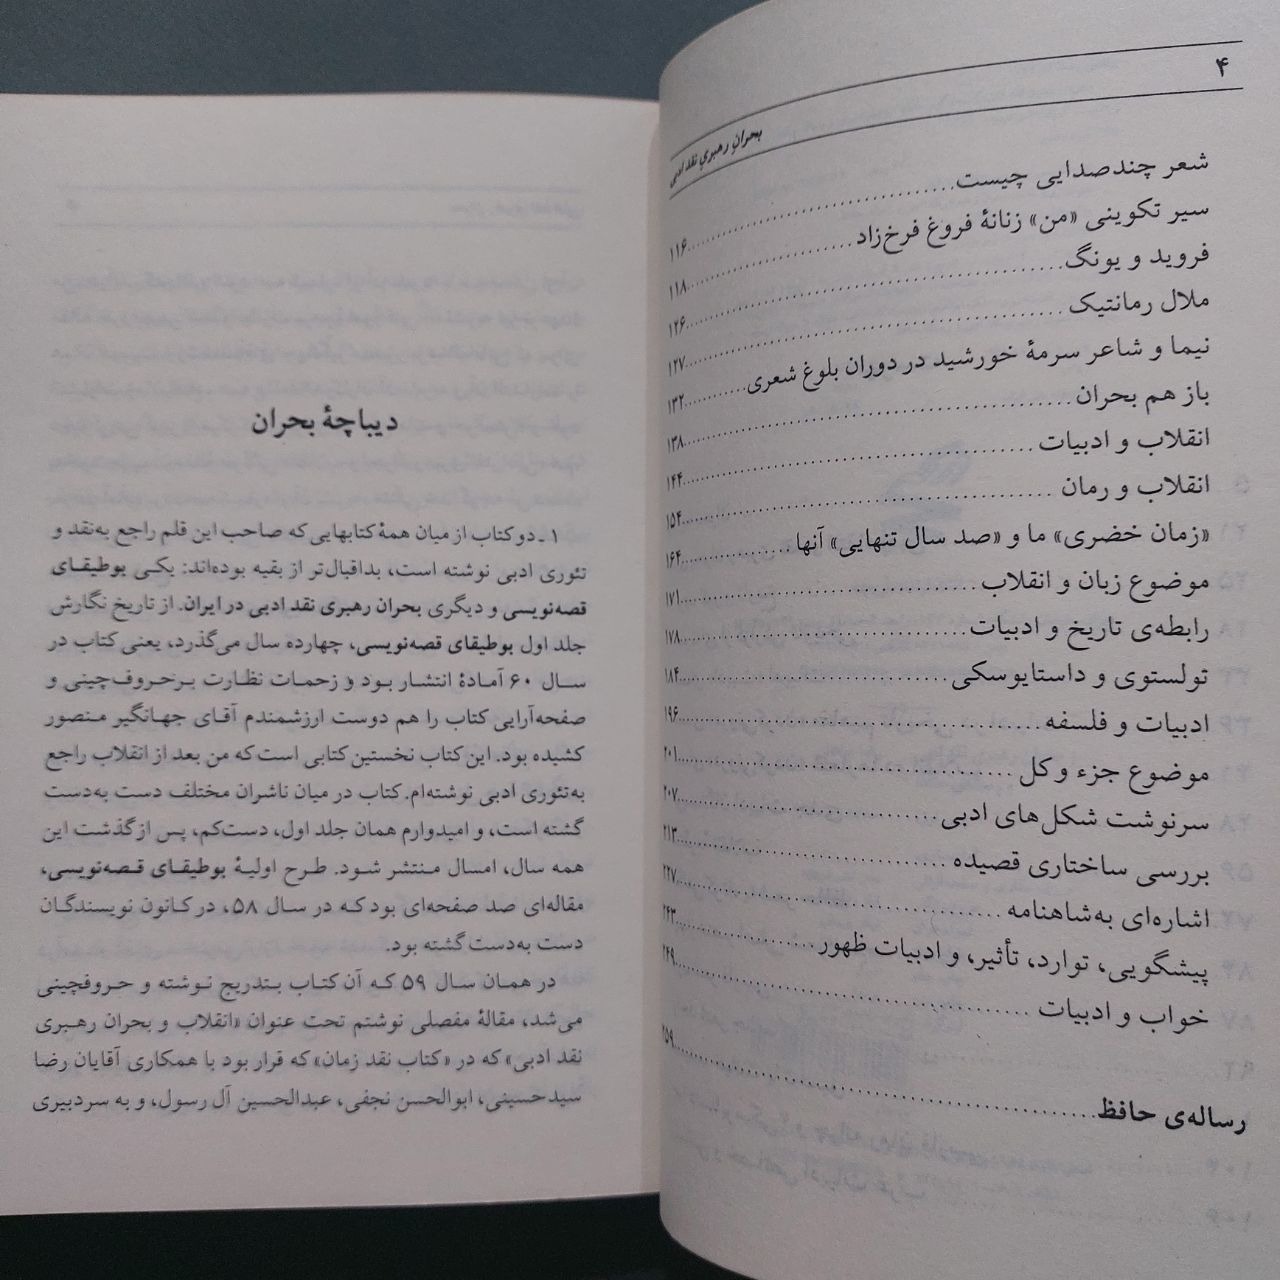 ۴
بحران رهبری نقد ادبی
شعر چندصدایی چیست................................۱۱۶
سیر تکوینی «من» زنانهٔ فروغ فرخ‌زاد................................۱۱۸
فروید و یونگ................................۱۲۶
ملال رمانتیک................................۱۲۷
نیما و شاعر سرمهٔ خورشید در دوران بلوغ شعری................................۱۳۲
باز هم بحران................................۱۳۸
انقلاب و ادبیات................................۱۴۴
انقلاب و رمان................................۱۵۴
«زمان خضری» ما و «صد سال تنهایی» آنها................................۱۶۴
موضوع زبان و انقلاب................................۱۷۱
رابطه‌ی تاریخ و ادبیات................................۱۷۸
تولستوی و داستایوسکی................................۱۸۴
ادبیات و فلسفه................................۱۹۶
موضوع جزء و کل................................۲۰۱
سرنوشت شکل‌های ادبی................................۲۰۷
بررسی ساختاری قصیده................................۲۱۳
اشاره‌ای به‌شاهنامه................................۲۲۷
پیشگویی، توارد، تأثیر، و ادبیات ظهور................................۲۴۳
خواب و ادبیات................................۲۴۹
رساله‌ی حافظ................................۲۵۹
دیباچهٔ بحران
۱ ـ دو کتاب از میان همهٔ کتابهایی که صاحب این قلم راجع به‌نقد و
تئوری ادبی نوشته است، بداقبال‌تر از بقیه بوده‌اند: یکی بوطیقای
قصه‌نویسی و دیگری بحران رهبری نقد ادبی در ایران. از تاریخ نگارش
جلد اول بوطیقای قصه‌نویسی، چهارده سال می‌گذرد، یعنی کتاب در
سال ۶۰ آمادهٔ انتشار بود و زحمات نظارت برحروف‌چینی و
صفحه‌آرایی کتاب را هم دوست ارزشمندم آقای جهانگیر منصور
کشیده بود. این کتاب نخستین کتابی است که من بعد از انقلاب راجع
به‌تئوری ادبی نوشته‌ام. کتاب در میان ناشران مختلف دست به‌دست
گشته است، و امیدوارم همان جلد اول، دست‌کم، پس از گذشت این
همه سال، امسال منتشر شود. طرح اولیهٔ بوطیقای قصه‌نویسی،
مقاله‌ای صد صفحه‌ای بود که در سال ۵۸، در کانون نویسندگان
دست به‌دست گشته بود.
در همان سال ۵۹ که آن کتاب بتدریج نوشته و حروفچینی
می‌شد، مقالهٔ مفصلی نوشتم تحت عنوان «انقلاب و بحران رهبری
نقد ادبی» که در «کتاب نقد زمان» که قرار بود با همکاری آقایان رضا
سیدحسینی، ابوالحسن نجفی، عبدالحسین آل رسول، و به سردبیری